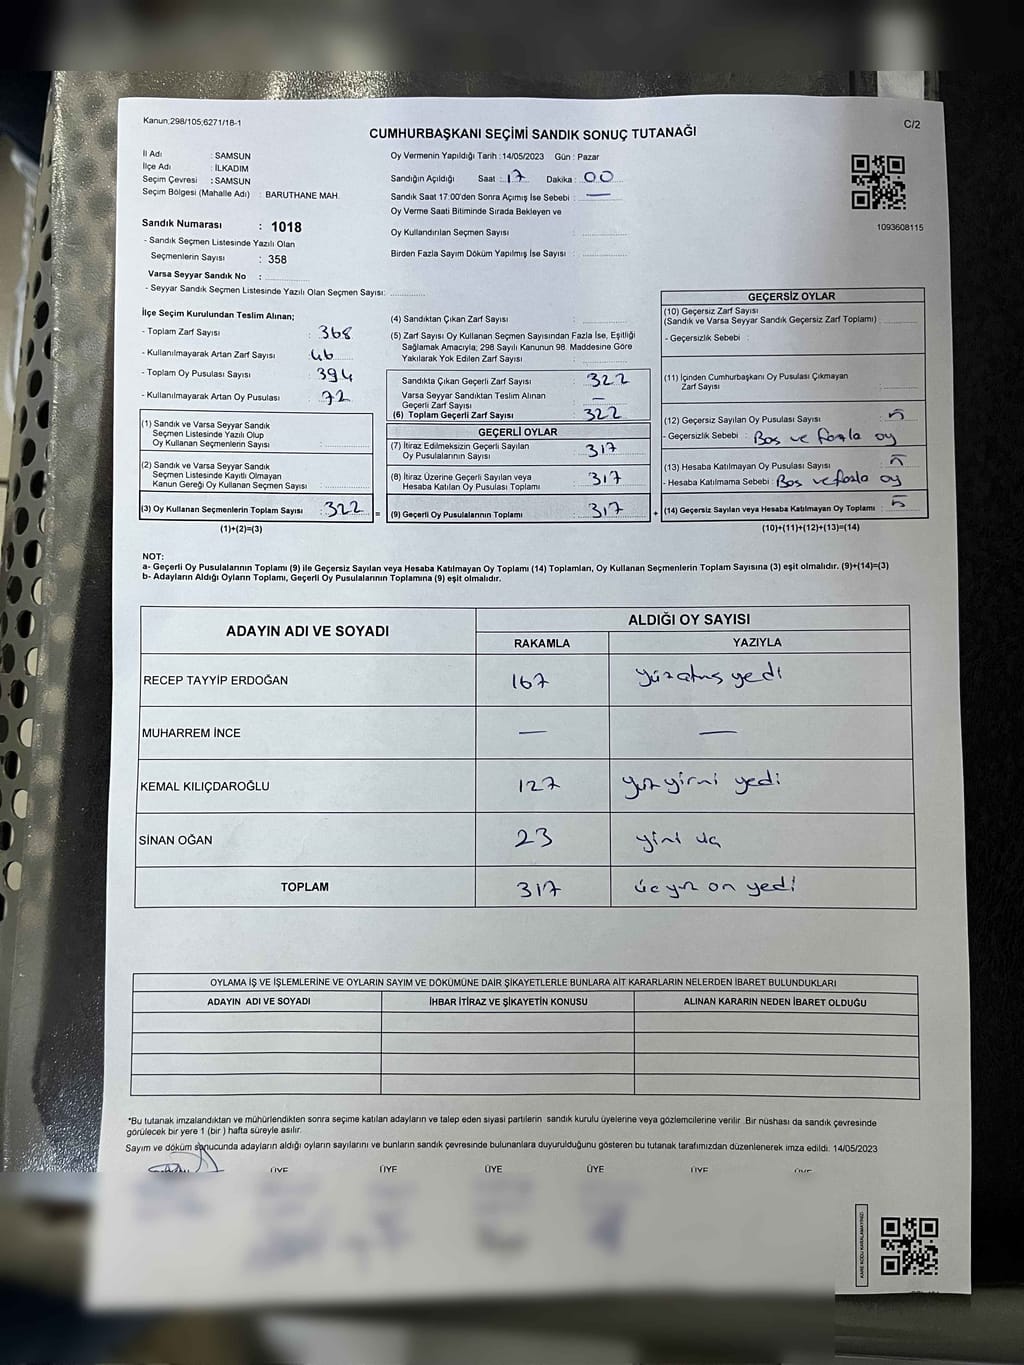 Kanun,298/105;6271/18-1
C/2
CUMHURBAŞKANI SEÇİMİ SANDIK SONUÇ TUTANAĞI
İl Adı : SAMSUN
İlçe Adı : İLKADIM
Seçim Çevresi : SAMSUN
Seçim Bölgesi (Mahalle Adı) : BARUTHANE MAH.
Oy Vermenin Yapıldığı Tarih : 14/05/2023 Gün : Pazar
Sandığın Açıldığı Saat : 17 Dakika : 00
Sandık Saat 17:00'den Sonra Açımış İse Sebebi : —
Oy Verme Saati Bitiminde Sırada Bekleyen ve
Oy Kullandırılan Seçmen Sayısı :
Birden Fazla Sayım Döküm Yapılmış İse Sayısı :
1093608115
Sandık Numarası : 1018
- Sandık Seçmen Listesinde Yazılı Olan
Seçmenlerin Sayısı : 358
Varsa Seyyar Sandık No :
- Seyyar Sandık Seçmen Listesinde Yazılı Olan Seçmen Sayısı:
İlçe Seçim Kurulundan Teslim Alınan;
- Toplam Zarf Sayısı : 368
- Kullanılmayarak Artan Zarf Sayısı : 46
- Toplam Oy Pusulası Sayısı : 394
- Kullanılmayarak Artan Oy Pusulası : 72
(1) Sandık ve Varsa Seyyar Sandık
Seçmen Listesinde Yazılı Olup
Oy Kullanan Seçmenlerin Sayısı :
(2) Sandık ve Varsa Seyyar Sandık
Seçmen Listesinde Kayıtlı Olmayan
Kanun Gereği Oy Kullanan Seçmen Sayısı :
(3) Oy Kullanan Seçmenlerin Toplam Sayısı : 322 =
(1)+(2)=(3)
(4) Sandıktan Çıkan Zarf Sayısı :
(5) Zarf Sayısı Oy Kullanan Seçmen Sayısından Fazla İse, Eşitliği
Sağlamak Amacıyla; 298 Sayılı Kanunun 98. Maddesine Göre
Yakılarak Yok Edilen Zarf Sayısı :
Sandıkta Çıkan Geçerli Zarf Sayısı : 322
Varsa Seyyar Sandıktan Teslim Alınan
Geçerli Zarf Sayısı : —
(6) Toplam Geçerli Zarf Sayısı : 322
GEÇERLİ OYLAR
(7) İtiraz Edilmeksizin Geçerli Sayılan
Oy Pusulalarının Sayısı : 317
(8) İtiraz Üzerine Geçerli Sayılan veya
Hesaba Katılan Oy Pusulası Toplamı : 317
(9) Geçerli Oy Pusulalarının Toplamı : 317 +
GEÇERSİZ OYLAR
(10) Geçersiz Zarf Sayısı
(Sandık ve Varsa Seyyar Sandık Geçersiz Zarf Toplamı) :
- Geçersizlik Sebebi :
(11) İçinden Cumhurbaşkanı Oy Pusulası Çıkmayan
Zarf Sayısı :
(12) Geçersiz Sayılan Oy Pusulası Sayısı : 5
- Geçersizlik Sebebi : Boş ve fazla oy
(13) Hesaba Katılmayan Oy Pusulası Sayısı :
- Hesaba Katılmama Sebebi : Boş ve fazla oy
(14) Geçersiz Sayılan veya Hesaba Katılmayan Oy Toplamı : 5
(10)+(11)+(12)+(13)=(14)
NOT:
a- Geçerli Oy Pusulalarının Toplamı (9) ile Geçersiz Sayılan veya Hesaba Katılmayan Oy Toplamı (14) Toplamları, Oy Kullanan Seçmenlerin Toplam Sayısına (3) eşit olmalıdır. (9)+(14)=(3)
b- Adayların Aldığı Oyların Toplamı, Geçerli Oy Pusulalarının Toplamına (9) eşit olmalıdır.
ADAYIN ADI VE SOYADI
ALDIĞI OY SAYISI
RAKAMLA YAZIYLA
RECEP TAYYİP ERDOĞAN 167 yüzatmış yedi
MUHARREM İNCE — —
KEMAL KILIÇDAROĞLU 127 yüz yirmi yedi
SİNAN OĞAN 23 yirmi üç
TOPLAM 317 üç yüz on yedi
OYLAMA İŞ VE İŞLEMLERİNE VE OYLARIN SAYIM VE DÖKÜMÜNE DAİR ŞİKAYETLERLE BUNLARA AİT KARARLARIN NELERDEN İBARET BULUNDUKLARI
ADAYIN ADI VE SOYADI İHBAR İTİRAZ VE ŞİKAYETİN KONUSU ALINAN KARARIN NEDEN İBARET OLDUĞU
*Bu tutanak imzalandıktan ve mühürlendikten sonra seçime katılan adayların ve talep eden siyasi partilerin sandık kurulu üyelerine veya gözlemcilerine verilir. Bir nüshası da sandık çevresinde
görülecek bir yere 1 (bir ) hafta süreyle asılır.
Sayım ve döküm sonucunda adayların aldığı oyların sayılarını ve bunların sandık çevresinde bulunanlara duyurulduğunu gösteren bu tutanak tarafımızdan düzenlenerek imza edildi. 14/05/2023
ÜYE ÜYE ÜYE ÜYE ÜYE
KARE KODU KARALAMAYINIZ!